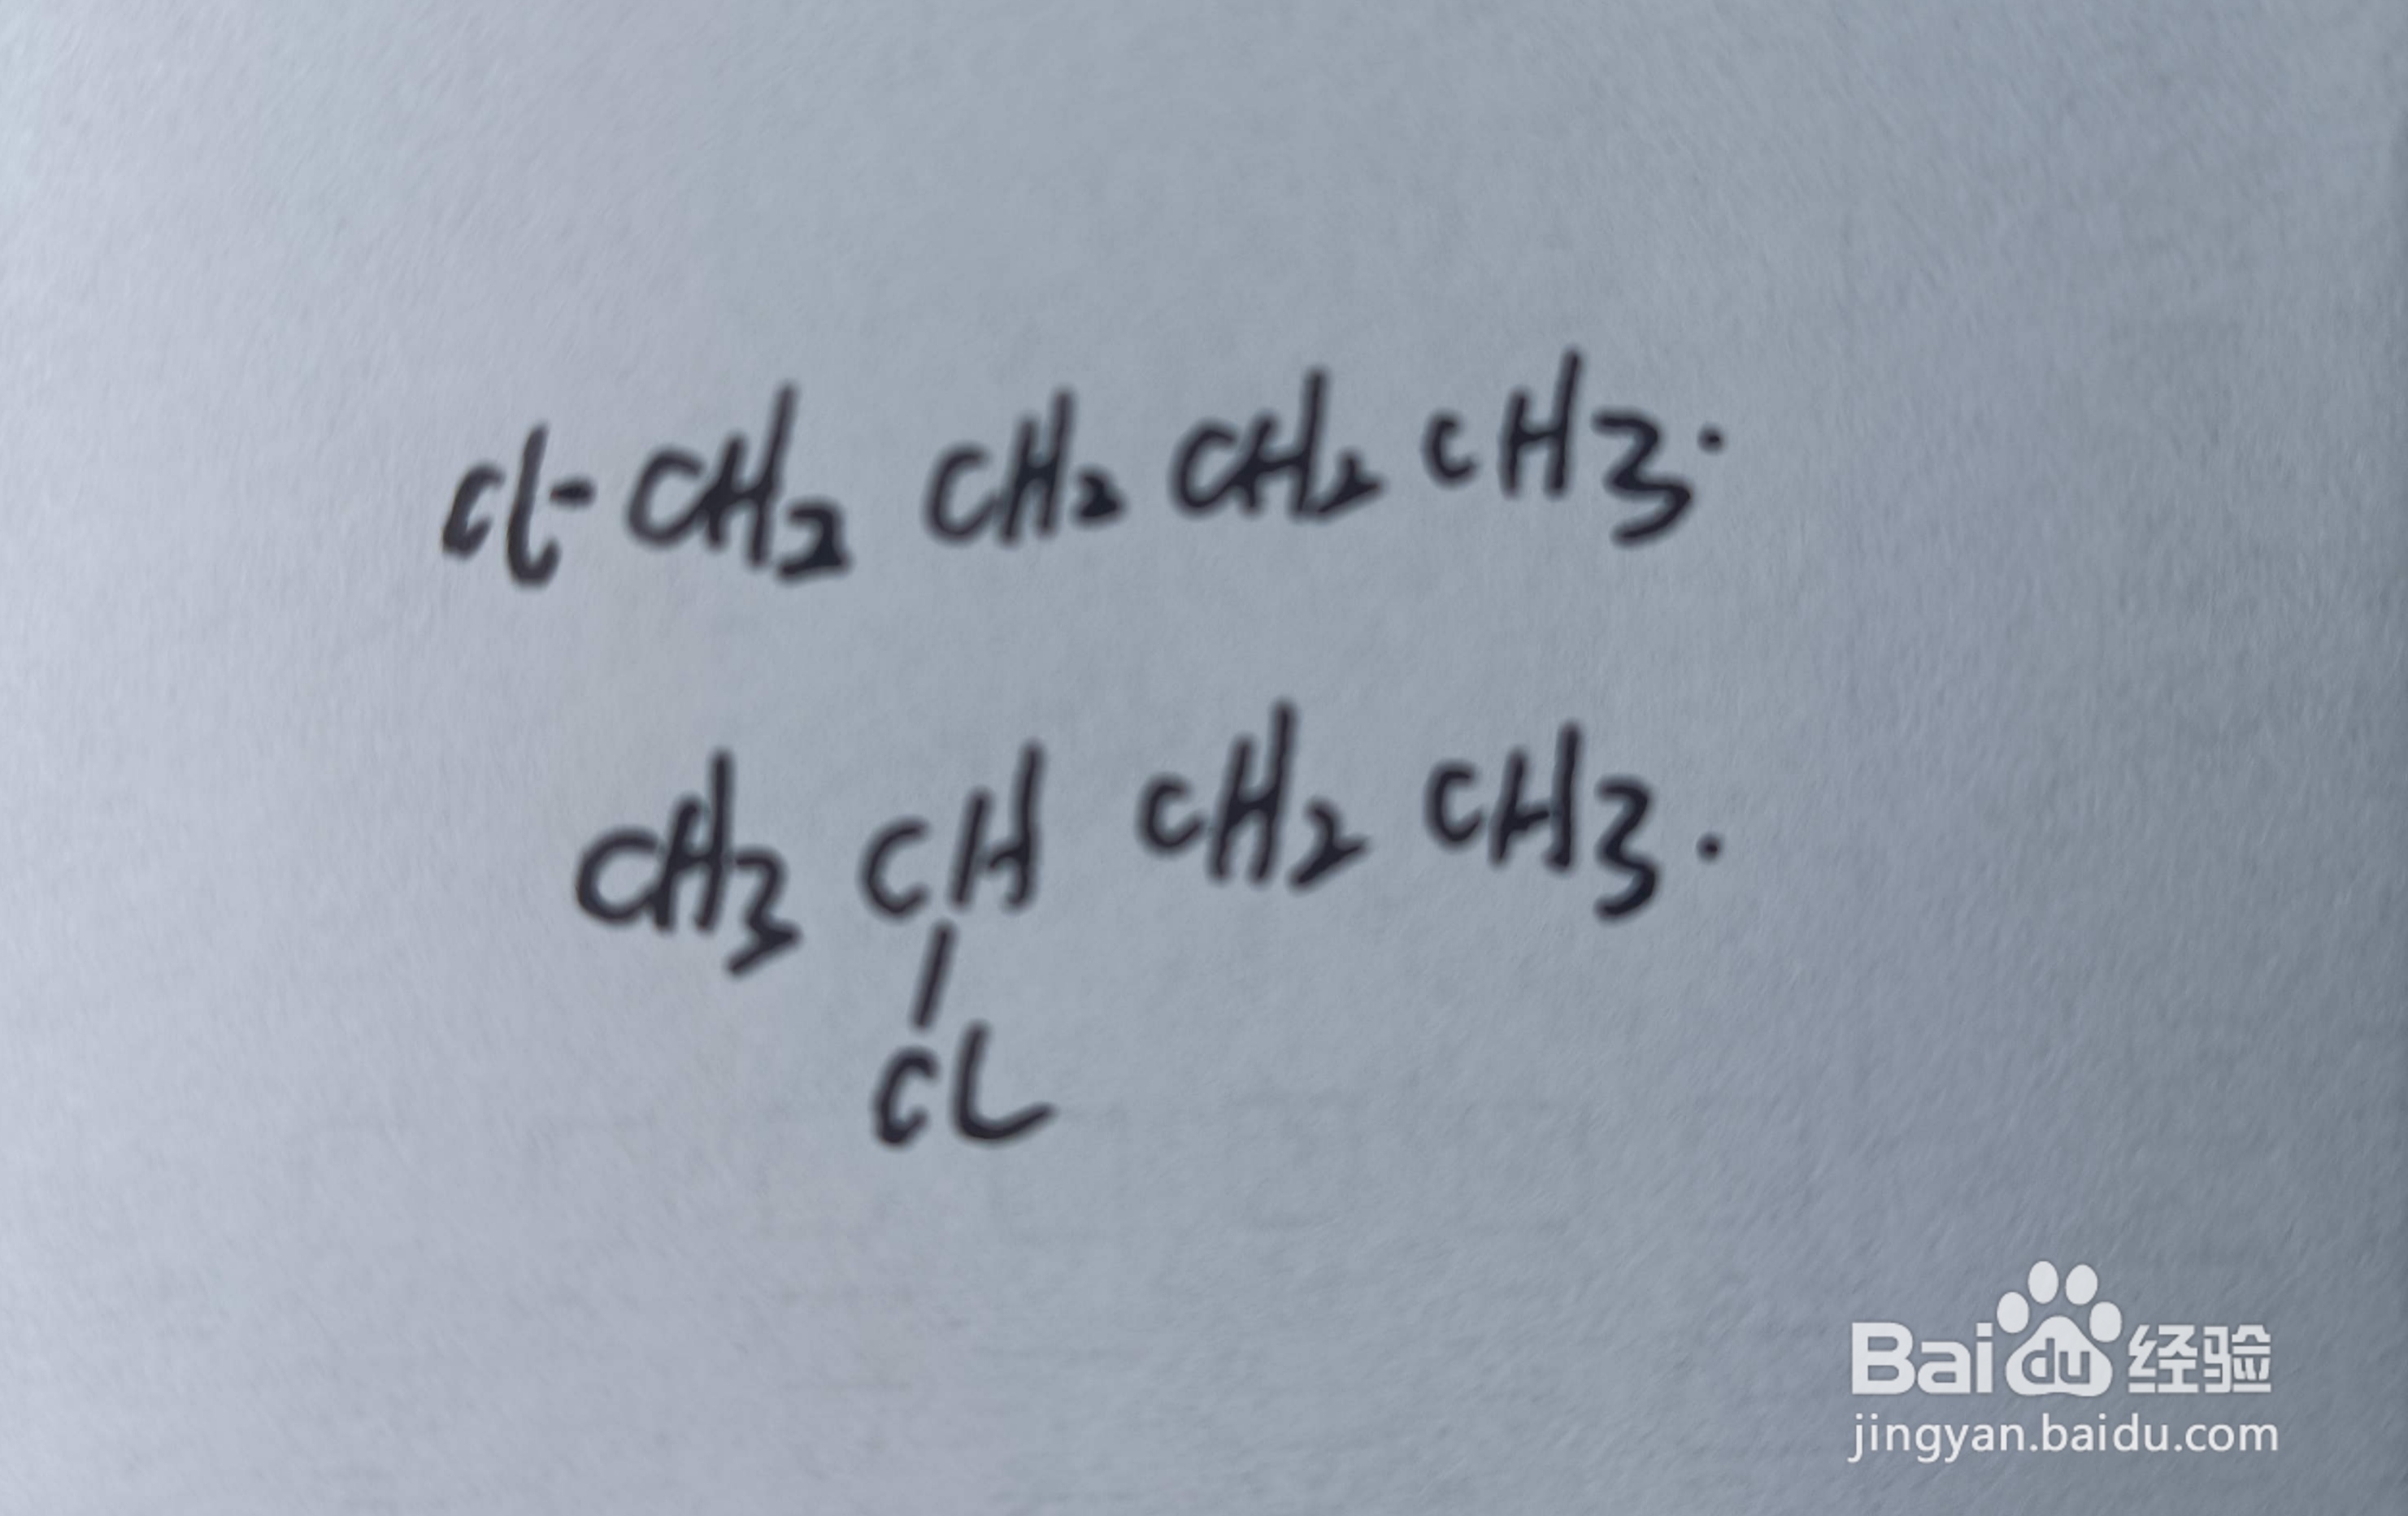 Cl-CH2 CH2 CH2 CH3.
CH3 CH CH2 CH3.
|
CL
Baidu经验
jingyan.baidu.com